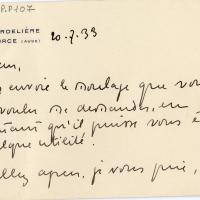 P.P107
RDELIÈRE
ORCE (AUDE)
20.7.33
envoie le moulage que vou
voulu me demander, en
qu'il puisse vous ê
lque utilité.
agréer, je vous prie,